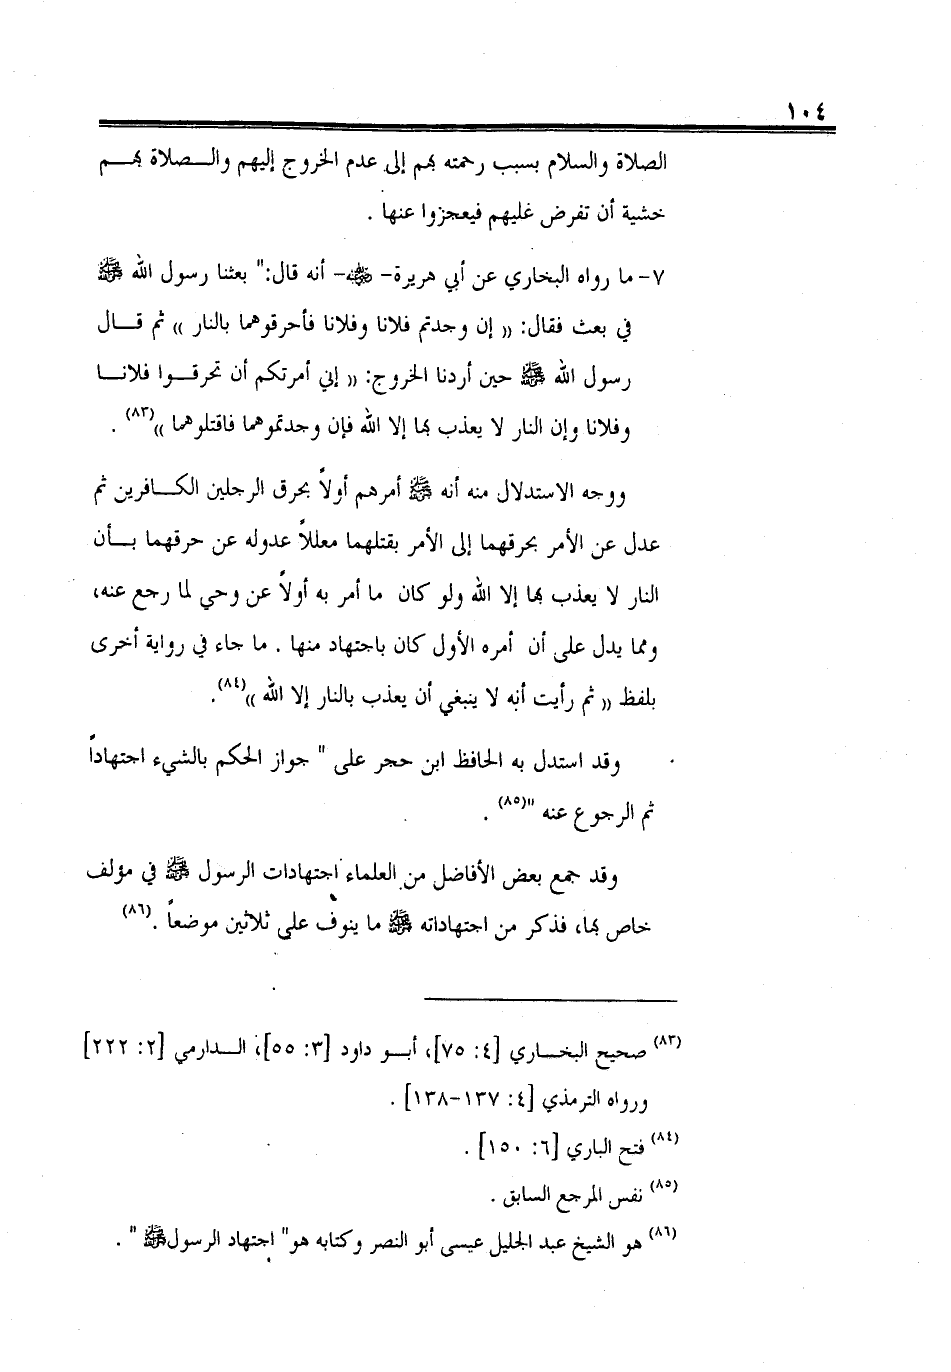 ١٠٤
الصلاة والسلام بسبب رحمته بهم إلى عدم الخروج إليهم والــصلاة بهــم
خشية أن تفرض غليهم فيعجزوا عنها .
٧- ما رواه البخاري عن أبي هريرة- ﷺ- أنه قال:" بعثنا رسول الله ﷺ
في بعث فقال: « إن وجدتم فلانا وفلانا فأحرقوهما بالنار » ثم قــال
رسول الله ﷺ حين أردنا الخروج: « إني أمرتكم أن تحرقــوا فلانــا
وفلانا وإن النار لا يعذب بها إلا الله فإن وجدتموهما فاقتلوهما »(٨٣) .
ووجه الاستدلال منه أنه ﷺ أمرهم أولاً بحرق الرجلين الكــافرين ثم
عدل عن الأمر بحرقهما إلى الأمر بقتلهما معللاً عدوله عن حرقهما بــأن
النار لا يعذب بها إلا الله ولو كان ما أمر به أولاً عن وحي لما رجع عنه،
ومما يدل على أن أمره الأول كان باجتهاد منها . ما جاء في رواية أخرى
بلفظ « ثم رأيت أنه لا ينبغي أن يعذب بالنار إلا الله »(٨٤).
وقد استدل به الحافظ ابن حجر على " جواز الحكم بالشيء اجتهاداً
ثم الرجوع عنه "(٨٥) .
وقد جمع بعض الأفاضل من العلماء اجتهادات الرسول ﷺ في مؤلف
خاص بها، فذكر من اجتهاداته ﷺ ما ينوف على ثلاثين موضعاً .(٨٦)
(٨٣) صحيح البخــاري [٤: ٧٥]، أبــو داود [٣: ٥٥]، الــدارمي [٢: ٢٢٢]
ورواه الترمذي [٤: ١٣٧-١٣٨] .
(٨٤) فتح الباري [٦: ١٥٠] .
(٨٥) نفس المرجع السابق .
(٨٦) هو الشيخ عبد الجليل عيسى أبو النصر وكتابه هو" اجتهاد الرسولﷺ " .